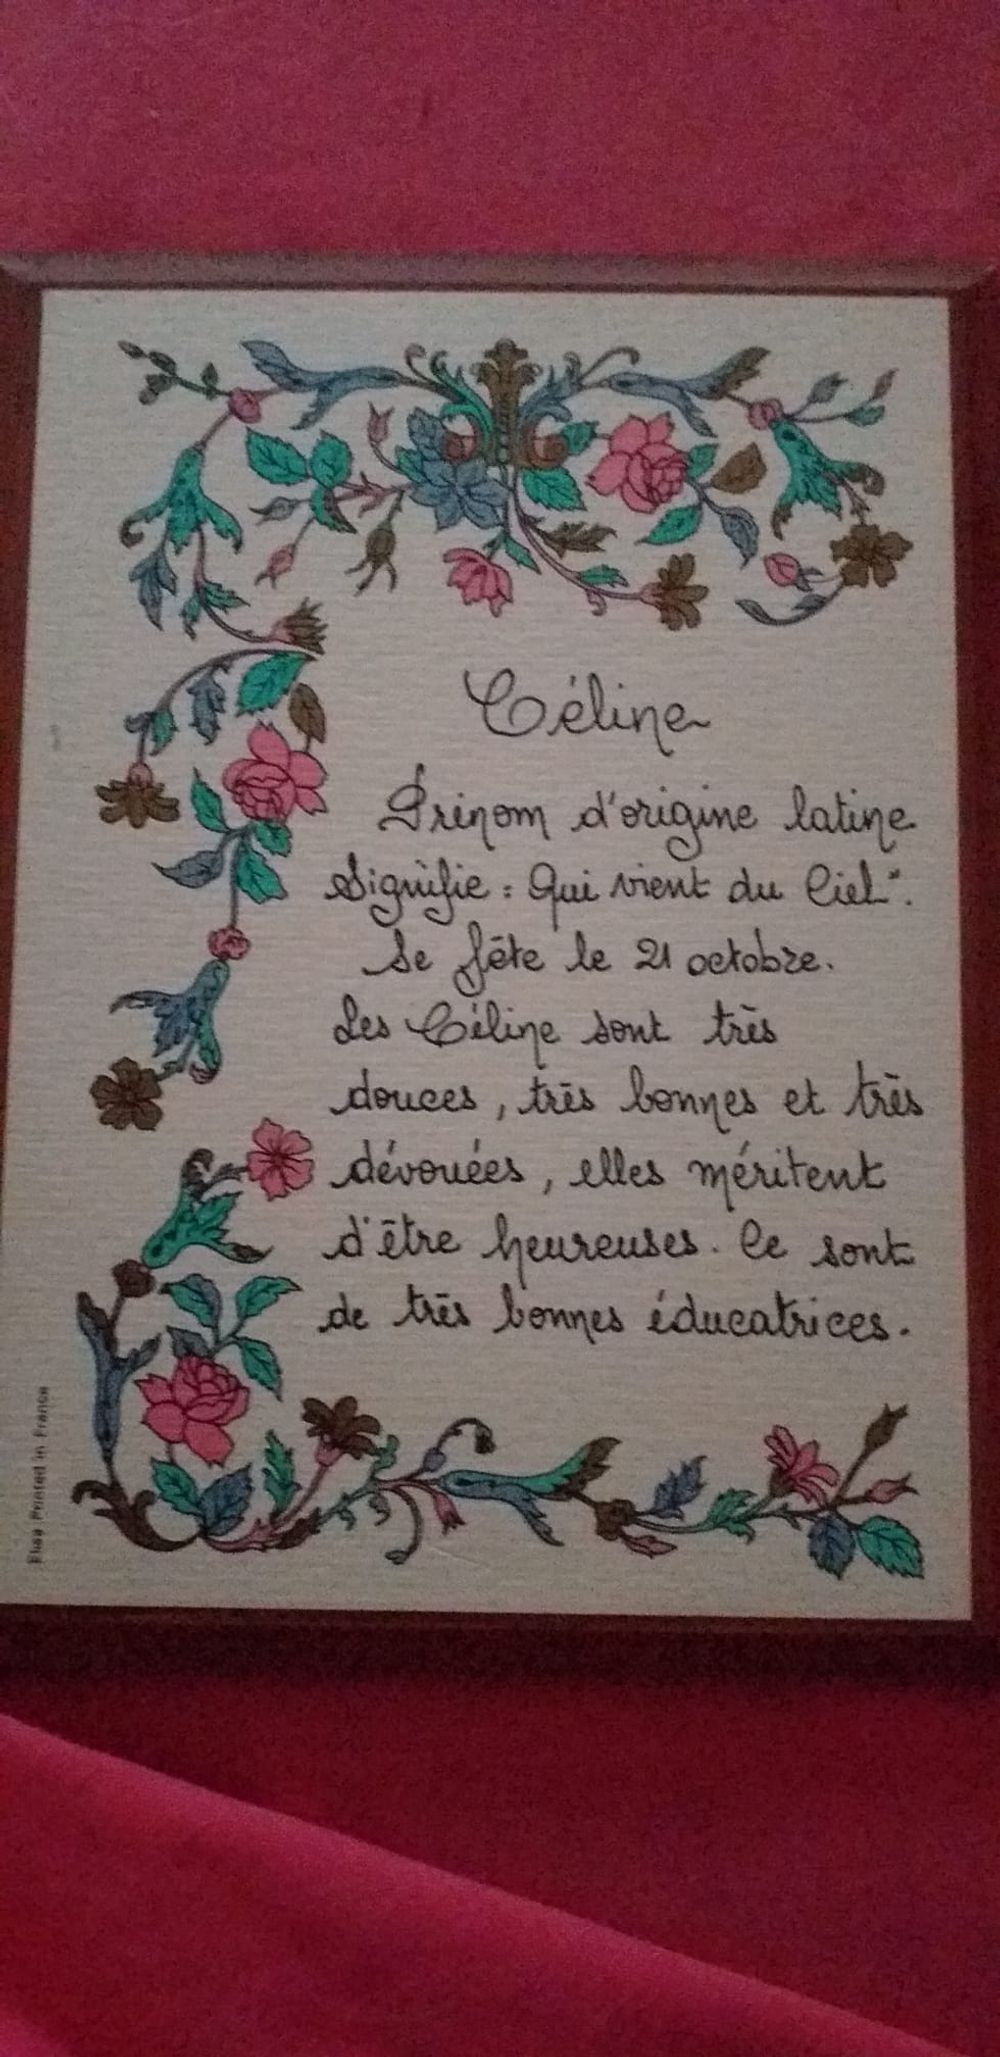 Céline
Prénom d'origine latine
Signifie : Qui vient du Ciel".
Se fête le 21 octobre.
Les Céline sont très
douces, très bonnes et très
dévouées, elles méritent
d'être heureuses. Ce sont
de très bonnes éducatrices.
Elsa Printed in France